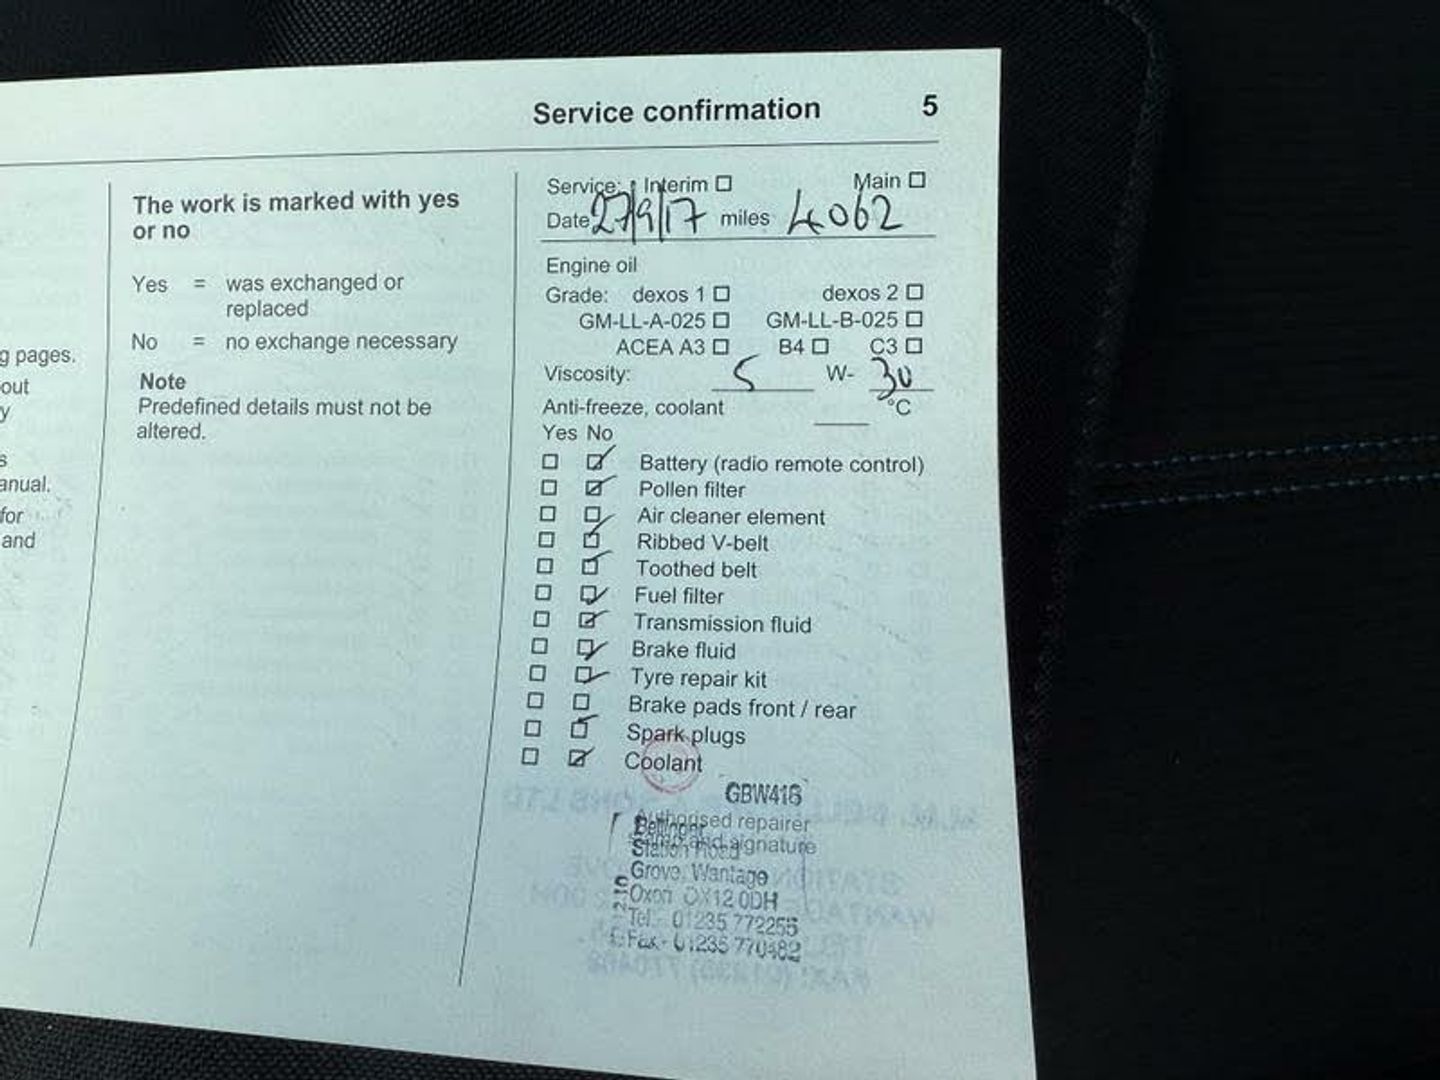 Service confirmation 5
g pages.
out
y
s
anual.
for
and
The work is marked with yes
or no
Yes = was exchanged or
replaced
No = no exchange necessary
Note
Predefined details must not be
altered.
Service: Interim ☐ Main ☐
Date 27/9/17 miles 4062
Engine oil
Grade: dexos 1 ☐ dexos 2 ☐
GM-LL-A-025 ☐ GM-LL-B-025 ☐
ACEA A3 ☐ B4 ☐ C3 ☐
Viscosity: 5 W- 30
Anti-freeze, coolant °C
Yes No
Battery (radio remote control)
Pollen filter
Air cleaner element
Ribbed V-belt
Toothed belt
Fuel filter
Transmission fluid
Brake fluid
Tyre repair kit
Brake pads front / rear
Spark plugs
Coolant
GBW416
Authorised repairer
Bellinger
stamp and signature
Station Road
Grove, Wantage
Oxon OX12 0DH
Tel: 01235 772255
Fax: 01235 770482